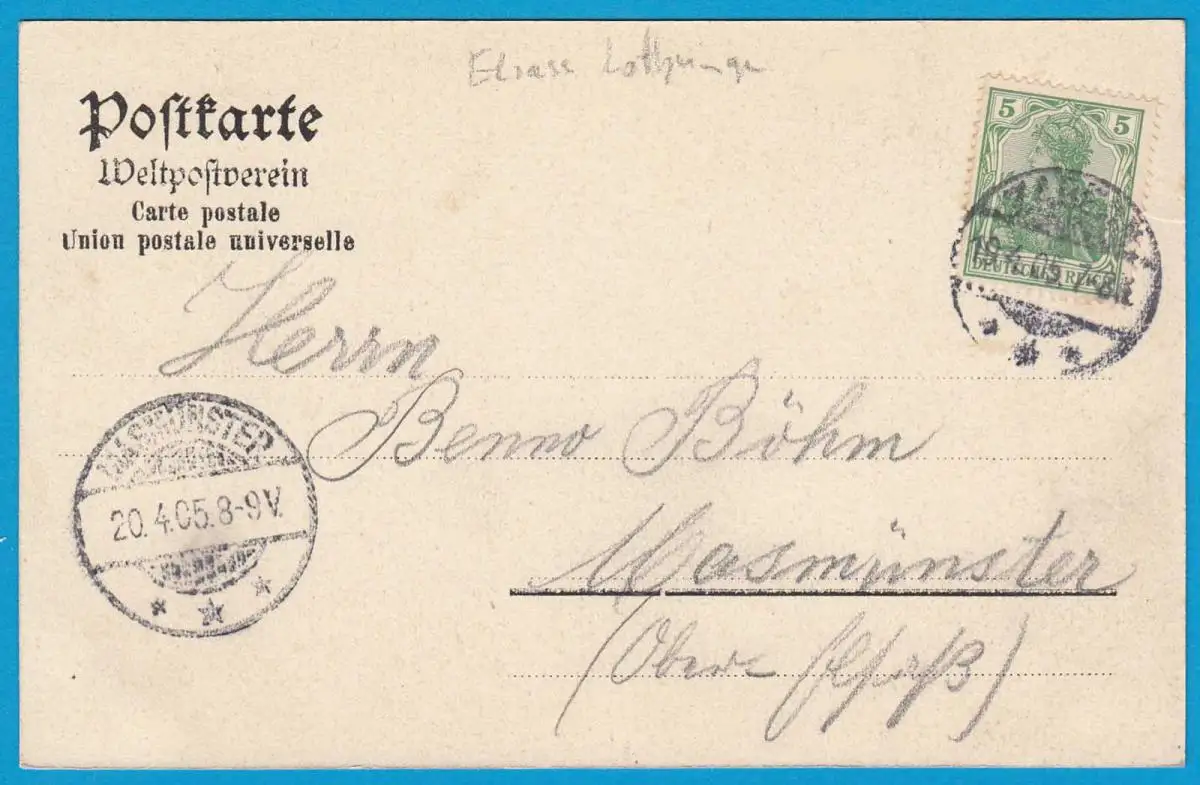 Elsass Lothringen
Postkarte
Weltpostverein
Carte postale
Union postale universelle
5 5
DEUTSCHES REICH
19.4.05. 7-8N.
Herrn
Benno Böhm
MASMÜNSTER
20.4.05.8-9V.
Masmünster
(Ober-Elsaß)